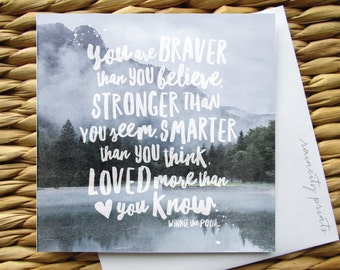 you are BRAVER
than YOU believe,
STRONGER THAN
YOU seem, SMARTER
than YOU think.
LOVED more than
you KNOW
WINNIE the POOH
raincity prints